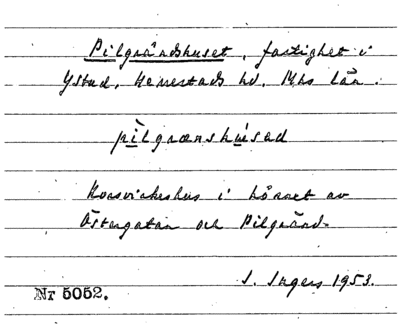 Pilgrändshuset, fastighet i
Ystad, Herrestads hd, Mhs län.
pìlgrænshúsəd
Korsvirkeshus i hörnet av
Östergatan och Pilgränd.
I. Ingers 1953.
Nr 5052.